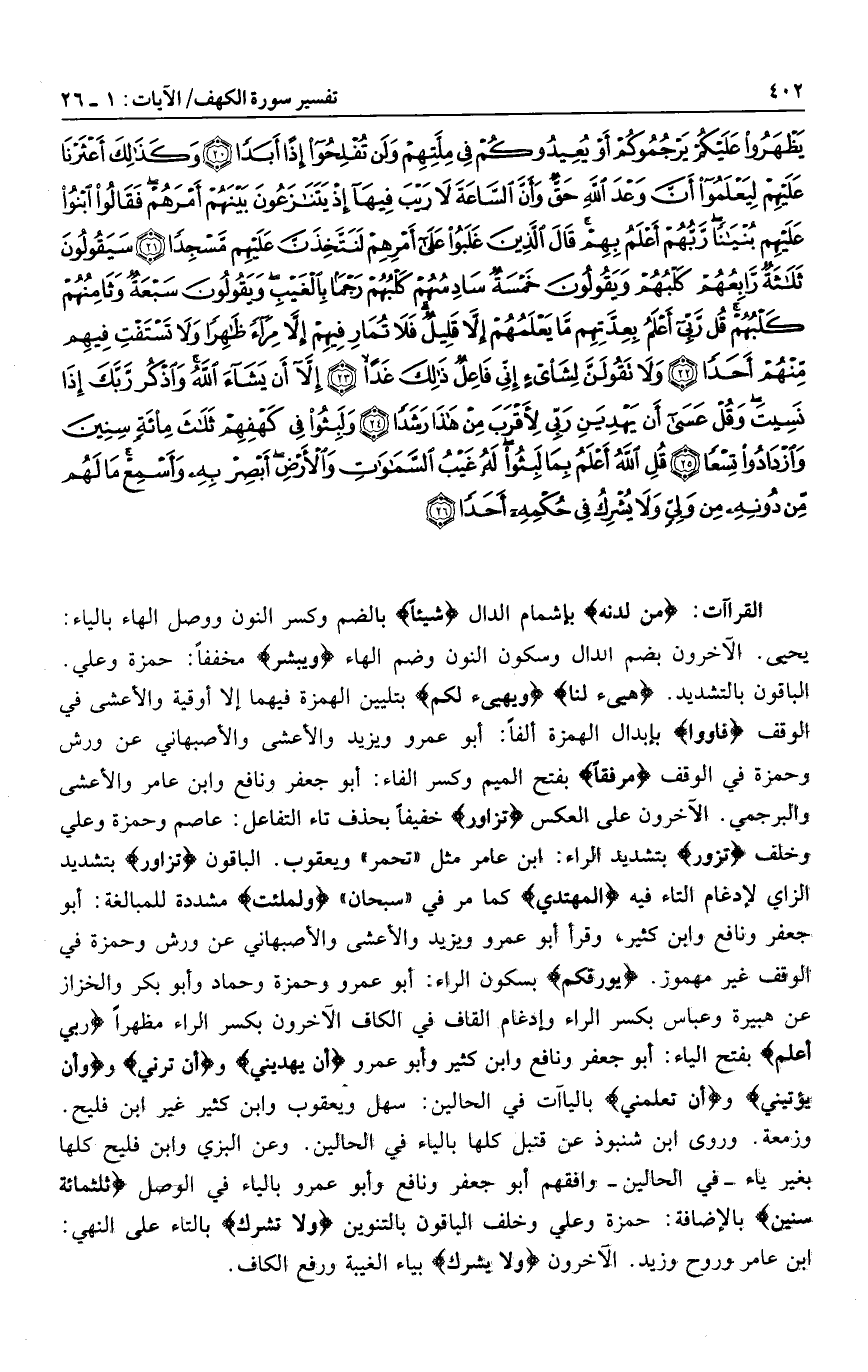 ٤٠٢ تفسير سورة الكهف/ الآيات: ١ ـ ٢٦
يَظْهَرُوا۟ عَلَيْكُمْ يَرْجُمُوكُمْ أَوْ يُعِيدُوكُمْ فِى مِلَّتِهِمْ وَلَن تُفْلِحُوٓا۟ إِذًا أَبَدًا ﴿٢٠﴾ وَكَذَٰلِكَ أَعْثَرْنَا
عَلَيْهِمْ لِيَعْلَمُوٓا۟ أَنَّ وَعْدَ ٱللَّهِ حَقٌّ وَأَنَّ ٱلسَّاعَةَ لَا رَيْبَ فِيهَآ إِذْ يَتَنَٰزَعُونَ بَيْنَهُمْ أَمْرَهُمْ ۖ فَقَالُوا۟ ٱبْنُوا۟
عَلَيْهِم بُنْيَٰنًا ۖ رَّبُّهُمْ أَعْلَمُ بِهِمْ ۚ قَالَ ٱلَّذِينَ غَلَبُوا۟ عَلَىٰٓ أَمْرِهِمْ لَنَتَّخِذَنَّ عَلَيْهِم مَّسْجِدًا ﴿٢١﴾ سَيَقُولُونَ
ثَلَٰثَةٌ رَّابِعُهُمْ كَلْبُهُمْ وَيَقُولُونَ خَمْسَةٌ سَادِسُهُمْ كَلْبُهُمْ رَجْمًۢا بِٱلْغَيْبِ ۖ وَيَقُولُونَ سَبْعَةٌ وَثَامِنُهُمْ
كَلْبُهُمْ ۚ قُل رَّبِّىٓ أَعْلَمُ بِعِدَّتِهِم مَّا يَعْلَمُهُمْ إِلَّا قَلِيلٌ ۗ فَلَا تُمَارِ فِيهِمْ إِلَّا مِرَآءً ظَٰهِرًا وَلَا تَسْتَفْتِ فِيهِم
مِّنْهُمْ أَحَدًا ﴿٢٢﴾ وَلَا تَقُولَنَّ لِشَا۟ىْءٍ إِنِّى فَاعِلٌ ذَٰلِكَ غَدًا ﴿٢٣﴾ إِلَّآ أَن يَشَآءَ ٱللَّهُ ۚ وَٱذْكُر رَّبَّكَ إِذَا
نَسِيتَ ۖ وَقُلْ عَسَىٰٓ أَن يَهْدِيَنِ رَبِّى لِأَقْرَبَ مِنْ هَٰذَا رَشَدًا ﴿٢٤﴾ وَلَبِثُوا۟ فِى كَهْفِهِمْ ثَلَٰثَ مِا۟ئَةٍ سِنِينَ
وَٱزْدَادُوا۟ تِسْعًا ﴿٢٥﴾ قُلِ ٱللَّهُ أَعْلَمُ بِمَا لَبِثُوا۟ ۖ لَهُۥ غَيْبُ ٱلسَّمَٰوَٰتِ وَٱلْأَرْضِ ۖ أَبْصِرْ بِهِۦ وَأَسْمِعْ ۚ مَا لَهُم
مِّن دُونِهِۦ مِن وَلِىٍّ وَلَا يُشْرِكُ فِى حُكْمِهِۦٓ أَحَدًا ﴿٢٦﴾
القراآت: ﴿من لدنه﴾ بإشمام الدال ﴿شيئاً﴾ بالضم وكسر النون ووصل الهاء بالياء:
يحيى. الآخرون بضم الدال وسكون النون وضم الهاء ﴿ويبشر﴾ مخففاً: حمزة وعلي.
الباقون بالتشديد. ﴿هيىء لنا﴾ ﴿ويهيىء لكم﴾ بتليين الهمزة فيهما إلا أوقية والأعشى في
الوقف ﴿فاووا﴾ بإبدال الهمزة ألفاً: أبو عمرو ويزيد والأعشى والأصبهاني عن ورش
وحمزة في الوقف ﴿مرفقاً﴾ بفتح الميم وكسر الفاء: أبو جعفر ونافع وابن عامر والأعشى
والبرجمي. الآخرون على العكس ﴿تزاور﴾ خفيفاً بحذف تاء التفاعل: عاصم وحمزة وعلي
وخلف ﴿تزور﴾ بتشديد الراء: ابن عامر مثل «تحمر» ويعقوب. الباقون ﴿تزاور﴾ بتشديد
الزاي لإدغام التاء فيه ﴿المهتدي﴾ كما مر في «سبحان» ﴿ولملئت﴾ مشددة للمبالغة: أبو
جعفر ونافع وابن كثير، وقرأ أبو عمرو ويزيد والأعشى والأصبهاني عن ورش وحمزة في
الوقف غير مهموز. ﴿بورقكم﴾ بسكون الراء: أبو عمرو وحمزة وحماد وأبو بكر والخزاز
عن هبيرة وعباس بكسر الراء وإدغام القاف في الكاف الآخرون بكسر الراء مظهراً ﴿ربي
أعلم﴾ بفتح الياء: أبو جعفر ونافع وابن كثير وأبو عمرو ﴿أن يهديني﴾ و﴿أن ترني﴾ و﴿وأن
يؤتيني﴾ و﴿أن تعلمني﴾ بالياآت في الحالين: سهل ويعقوب وابن كثير غير ابن فليح.
وزمعة. وروى ابن شنبوذ عن قتبل كلها بالياء في الحالين. وعن البزي وابن فليح كلها
بغير ياء ـ في الحالين ـ وافقهم أبو جعفر ونافع وأبو عمرو بالياء في الوصل ﴿ثلثمائة
سنين﴾ بالإضافة: حمزة وعلي وخلف الباقون بالتنوين ﴿ولا تشرك﴾ بالتاء على النهي:
ابن عامر وروح وزيد. الآخرون ﴿ولا يشرك﴾ بياء الغيبة ورفع الكاف.